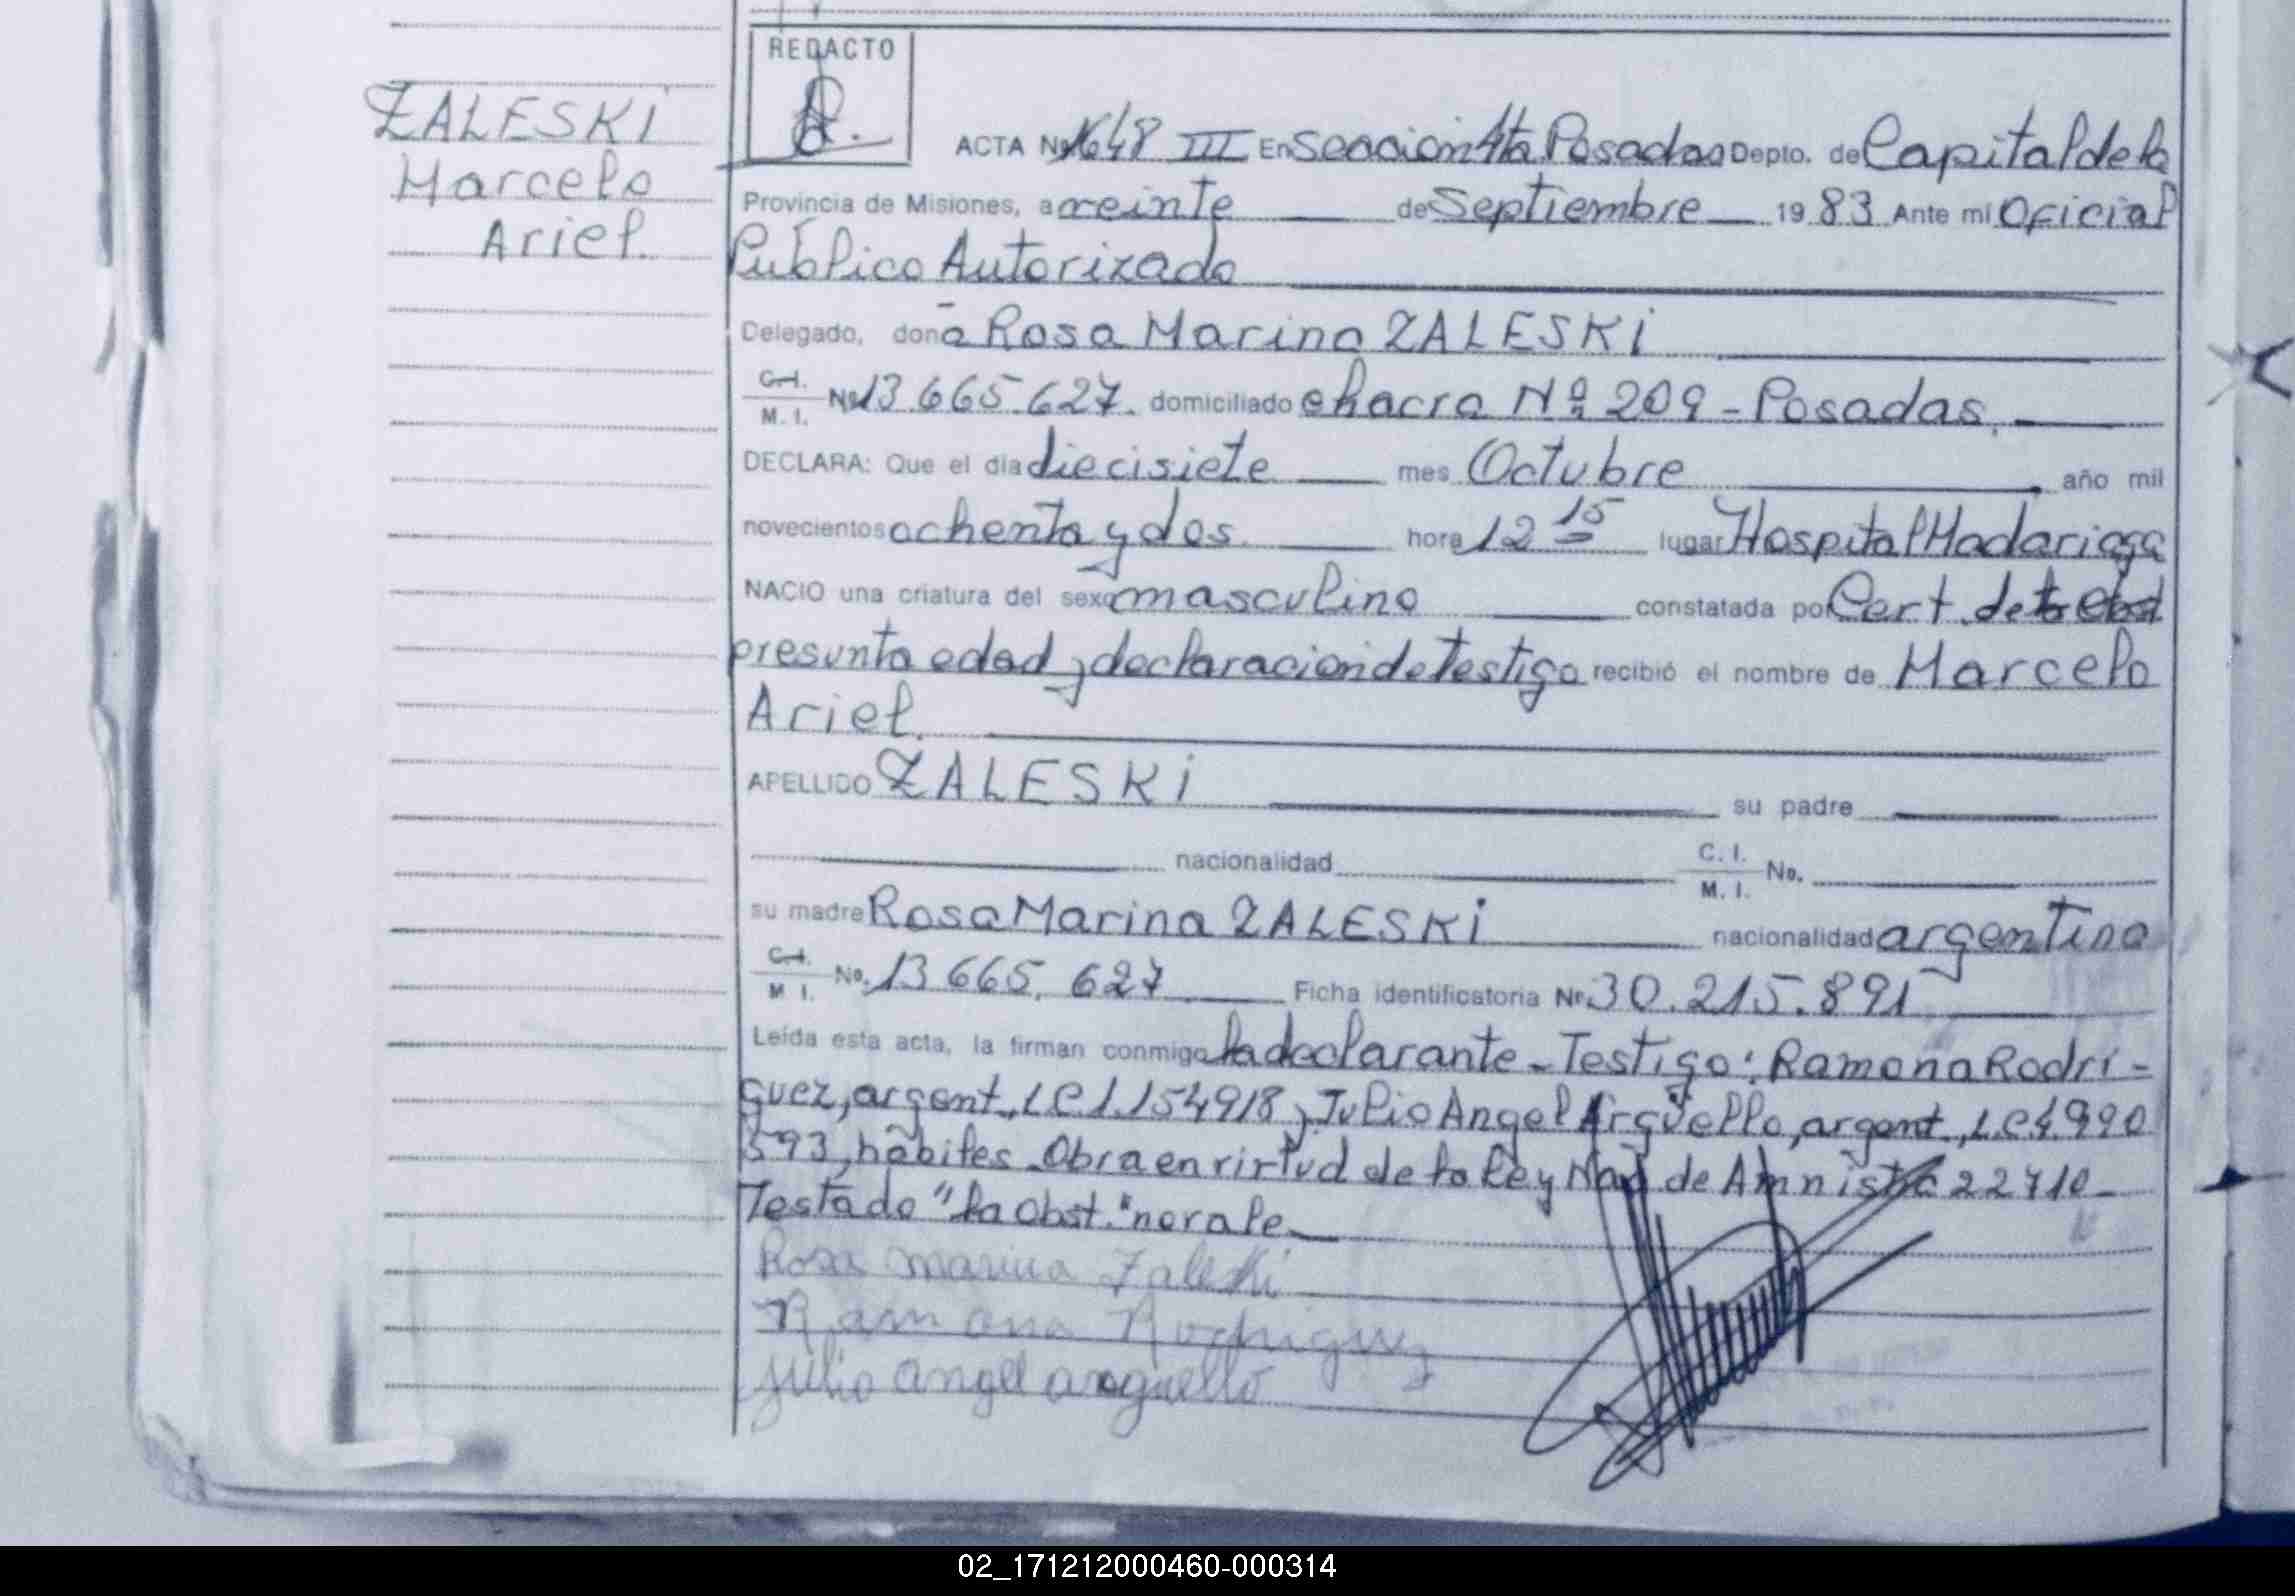 REDACTO
ZALESKI
Marcelo
Ariel.
ACTA No 1648 III En Seccion 4ta. Posadas Depto. de Capital de la
Provincia de Misiones, a veinte de Septiembre 19 83 Ante mi Oficial
Público Autorizado
Delegado, doña Rosa Marina ZALESKI
C.I. M.I. No 13.665.627. domiciliado chacra Nº 209 - Posadas.
DECLARA: Que el día diecisiete mes Octubre año mil
novecientos ochenta y dos. hora 12 15 lugar Hospital Madariaga
NACIO una criatura del sexo masculino constatada por Cert. de la Obst
presunta edad y declaracion de testigo recibió el nombre de Marcelo
Ariel.
APELLIDO ZALESKI su padre
nacionalidad C.I. M.I. No.
su madre Rosa Marina ZALESKI nacionalidad argentina
C.I. M.I. No. 13.665.627 Ficha identificatoria Nº 30.215.891
Leída esta acta, la firman conmigo la declarante - Testigo: Ramona Rodrí-
guez, argent., LC 1.154918 y Julio Angel Argüello, argent., L.C 4.990
593, hábiles. Obra en virtud de la Ley Nac de Amnistía 22410-
Testado "la Obst." no vale
Rosa Marina Zaleski
Ramona Rodriguez
Julio angel arguello
02_171212000460-000314